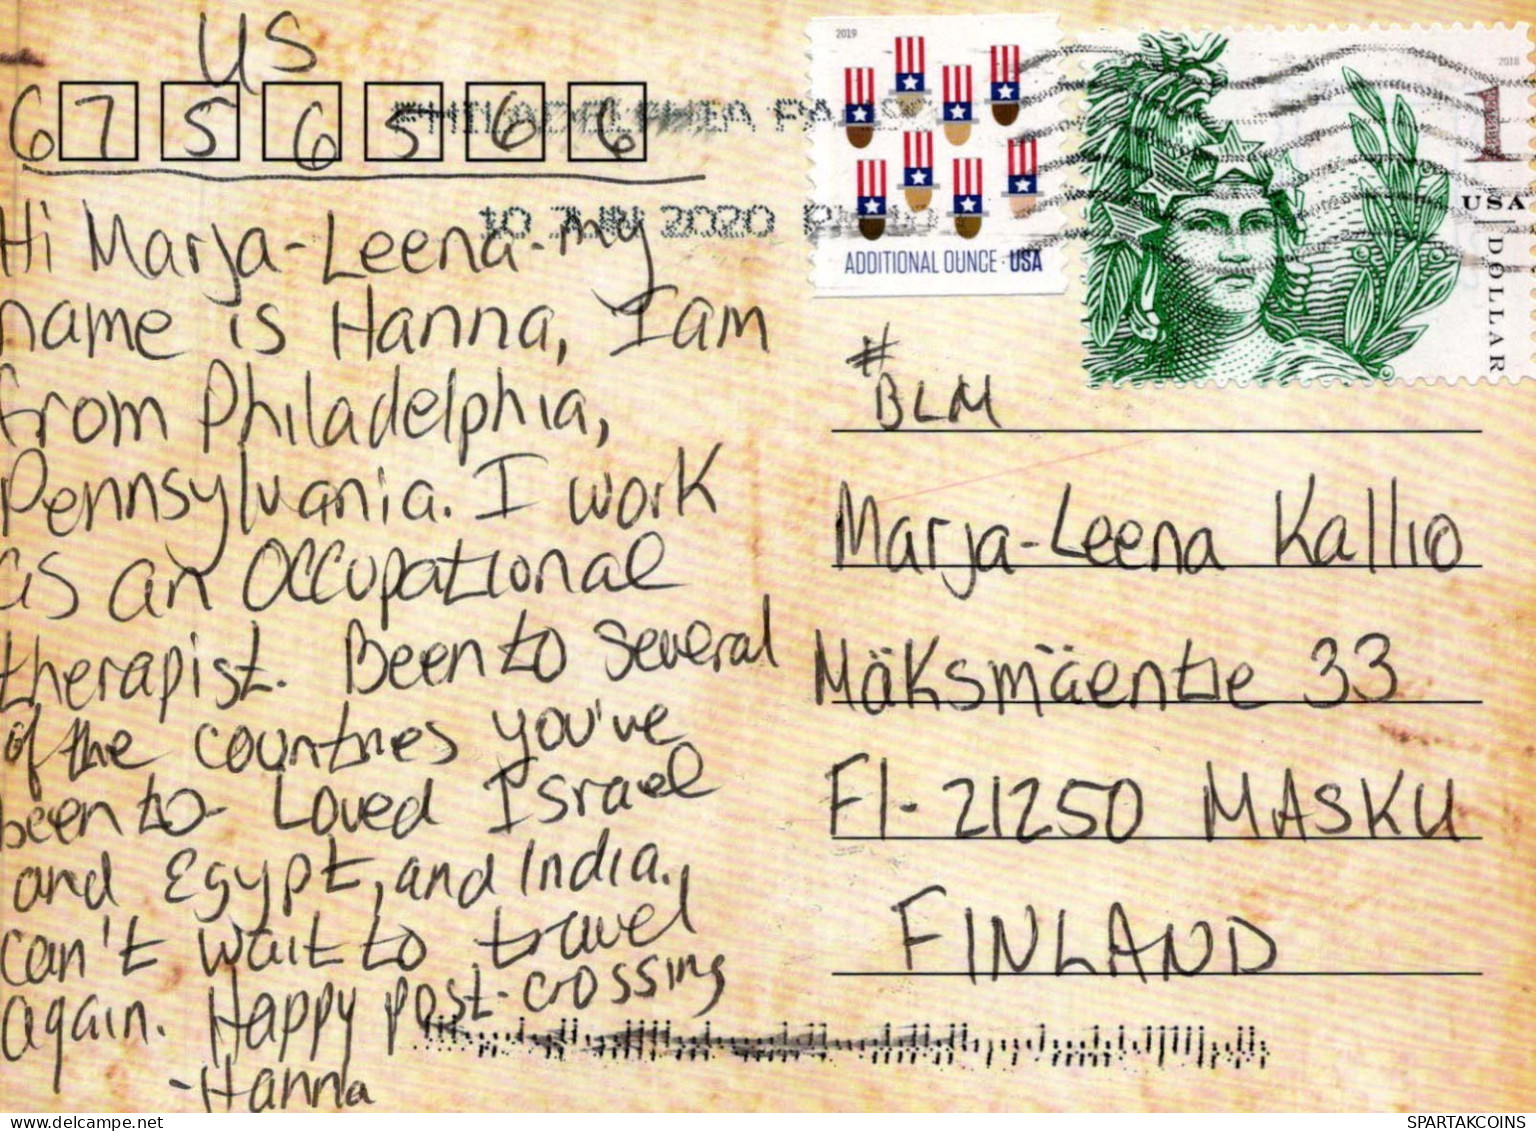 US
6756566
Hi Marja-Leena-my
name is Hanna, I am
from Philadelphia,
Pennsylvania. I work
as an Occupational
therapist. Been to several
of the countries you've
been to- Loved Israel
and Egypt, and India.
can't wait to travel
again. Happy post-crossing
-Hanna
PHILADELPHIA PA
2020
2019
ADDITIONAL OUNCE · USA
2018
1
USA
DOLLAR
#
BLM
Marja-Leena Kallio
Mäksmäentie 33
FI-21250 MASKU
FINLAND
delcampe.net
SPARTAKCOINS